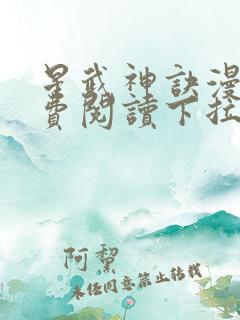 星武神訣漫
費閱讀下拉
阿黎
未经同意禁止转载